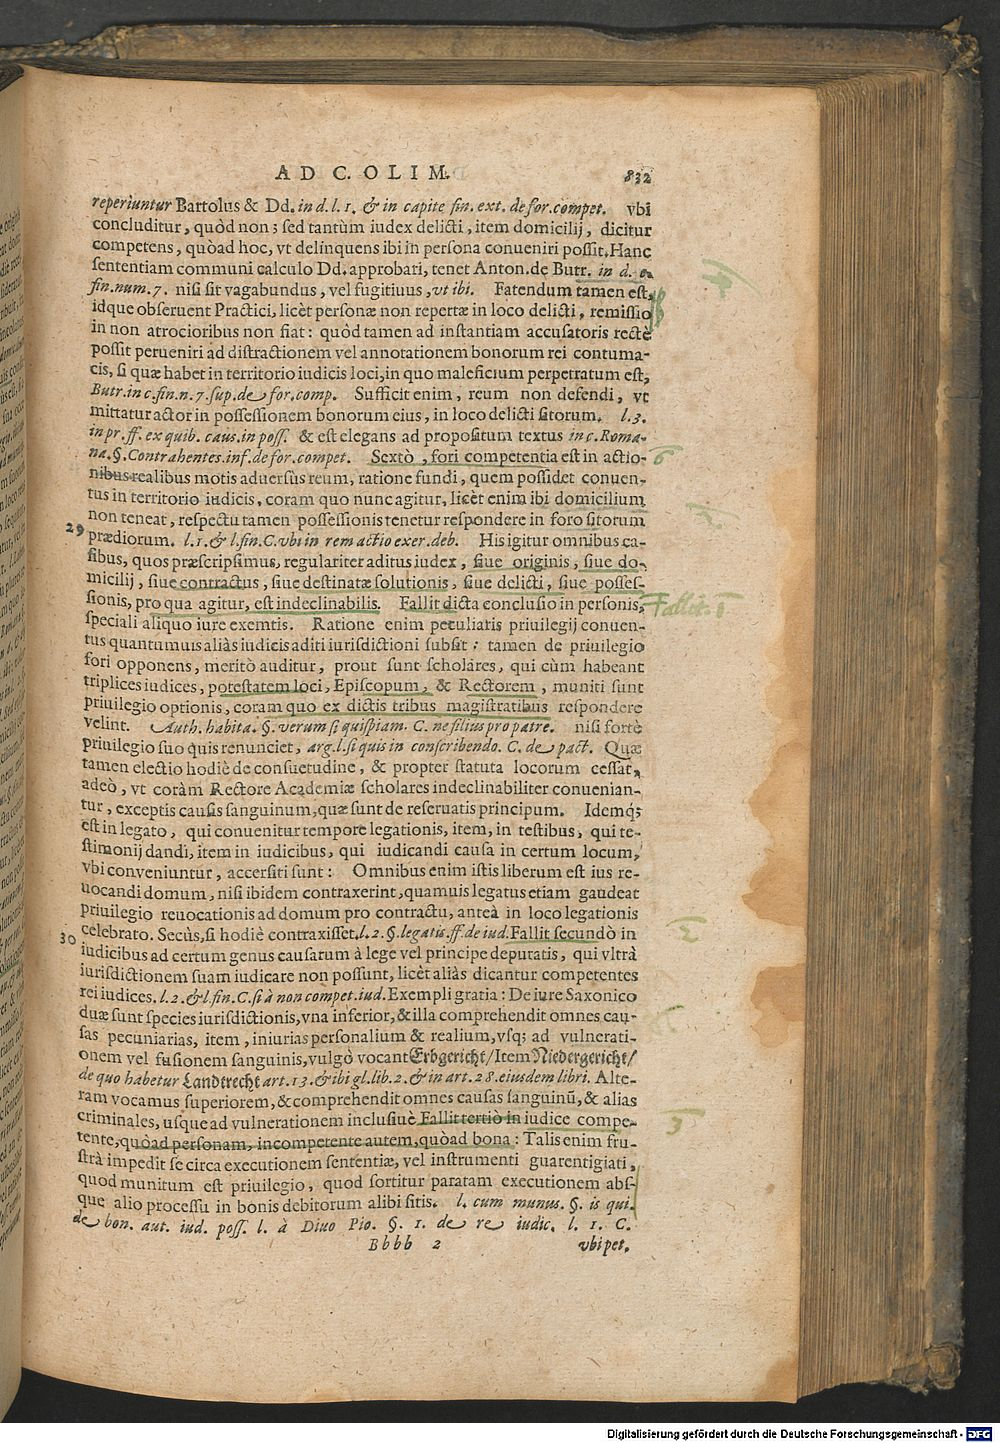 AD C. OLIM. 832
reperiuntur Bartolus & Dd. in d. l. 1. & in capite fin. ext. de for. compet. vbi
concluditur, quòd non; sed tantùm iudex delicti, item domicilij, dicitur
competens, quòad hoc, vt delinquens ibi in persona conueniri possit. Hanc
sententiam communi calculo Dd. approbari, tenet Anton. de Butr. in d. c.
fin. num. 7. nisi sit vagabundus, vel fugitiuus, vt ibi. Fatendum tamen est,
idque obseruent Practici, licèt personæ non repertæ in loco delicti, remissio
in non atrocioribus non fiat: quòd tamen ad instantiam accusatoris rectè
possit perueniri ad distractionem vel annotationem bonorum rei contuma-
cis, si quæ habet in territorio iudicis loci, in quo maleficium perpetratum est,
Butr. in c. fin. n. 7. sup. de for. comp. Sufficit enim, reum non defendi, vt
mittatur actor in possessionem bonorum eius, in loco delicti sitorum. l. 3.
in pr. ff. ex quib. caus. in poss. & est elegans ad propositum textus in c. Roma-
na. §. Contrahentes. inf. de for. compet. Sextò, fori competentia est in actio- 6
nibus realibus motis aduersus reum, ratione fundi, quem possidet conuen-
tus in territorio iudicis, coram quo nunc agitur, licèt enim ibi domicilium
non teneat, respectu tamen possessionis tenetur respondere in foro sitorum
29 prædiorum. l. 1. & l. fin. C. vbi in rem actio exer. deb. His igitur omnibus ca-
sibus, quos præscripsimus, regulariter aditus iudex, siue originis, siue do-
micilij, siue contractus, siue destinatæ solutionis, siue delicti, siue posses-
sionis, pro qua agitur, est indeclinabilis. Fallit dicta conclusio in personis, Fallit. 1
speciali aliquo iure exemtis. Ratione enim peculiaris priuilegij conuen-
tus quantumuis aliàs iudicis aditi iurisdictioni subsit: tamen de priuilegio
fori opponens, meritò auditur, prout sunt scholares, qui cùm habeant
triplices iudices, potestatem loci, Episcopum, & Rectorem, muniti sunt
priuilegio optionis, coram quo ex dictis tribus magistratibus respondere
velint. Auth. habita. §. verum si quispiam. C. ne filius pro patre. nisi fortè
priuilegio suo quis renunciet, arg. l. si quis in conscribendo. C. de pact. Quæ
tamen electio hodiè de consuetudine, & propter statuta locorum cessat,
adeò, vt coràm Rectore Academiæ scholares indeclinabiliter conuenian-
tur, exceptis causis sanguinum, quæ sunt de reseruatis principum. Idemq;
est in legato, qui conuenitur tempore legationis, item, in testibus, qui te-
stimonij dandi, item in iudicibus, qui iudicandi causa in certum locum,
vbi conveniuntur, accersiti sunt: Omnibus enim istis liberum est ius re-
uocandi domum, nisi ibidem contraxerint, quamuis legatus etiam gaudeat
priuilegio reuocationis ad domum pro contractu, anteà in loco legationis
30 celebrato. Secùs, si hodiè contraxisset. l. 2. §. legatis. ff. de iud. Fallit secundò in 2
iudicibus ad certum genus causarum à lege vel principe deputatis, qui vltrà
iurisdictionem suam iudicare non possunt, licèt aliàs dicantur competentes
rei iudices. l. 2. & l. fin. C. si à non compet. iud. Exempli gratia: De iure Saxonico
duæ sunt species iurisdictionis, vna inferior, & illa comprehendit omnes cau-
sas pecuniarias, item, iniurias personalium & realium, vsq; ad vulnerati-
onem vel fusionem sanguinis, vulgò vocant Erbgericht/ Item Niedergericht/
de quo habetur Landtrecht art. 13. & ibi gl. lib. 2. & in art. 28. eiusdem libri. Alte-
ram vocamus superiorem, & comprehendit omnes causas sanguinū, & alias
criminales, usque ad vulnerationem inclusiuè Fallit tertiò in iudice compe- 3
tente, quòad personam, incompetente autem, quòad bona: Talis enim fru-
strà impedit se circa executionem sententiæ, vel instrumenti guarentigiati,
quod munitum est priuilegio, quod sortitur paratam executionem abs-
que alio processu in bonis debitorum alibi sitis. l. cum munus. §. is qui.
de bon. aut. iud. poss. l. à Diuo Pio. §. 1. de re iudic. l. 1. C.
Bbbb 2 vbi pet.
Digitalisierung gefördert durch die Deutsche Forschungsgemeinschaft - DFG